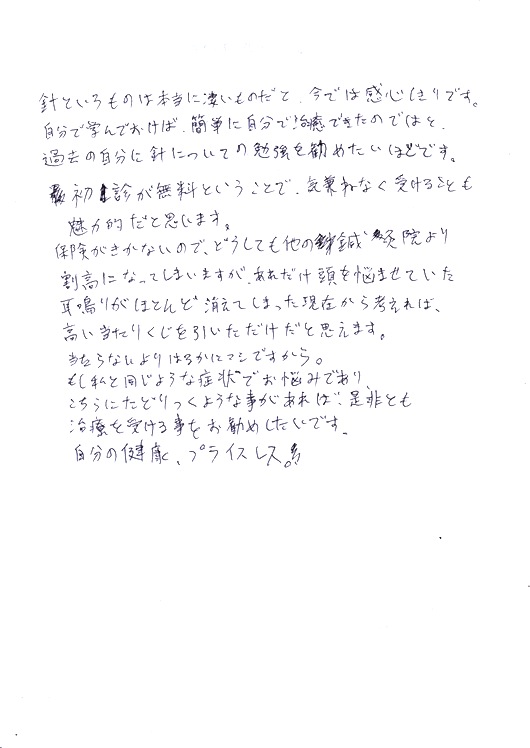 針というものは本当に凄いものだと、今では感心しきりです。
自分で学んでおけば、簡単に自分で治療できたのではと、
過去の自分に針についての勉強を勧めたいほどです。
初診が無料ということで、気兼ねなく受けることも
魅力的だと思います。
保険がきかないので、どうしても他の鍼灸院より
割高になってしまいますが、あれだけ頭を悩ませていた
耳鳴りがほとんど消えてしまった現在から考えれば、
高い当たりくじを引いただけだと思えます。
当たらないよりはるかにマシですから。
もし私と同じような症状でお悩みであり、
こちらにたどりつくような事があれば、是非とも
治療を受ける事をお勧めしたいです。
自分の健康、プライスレス!!